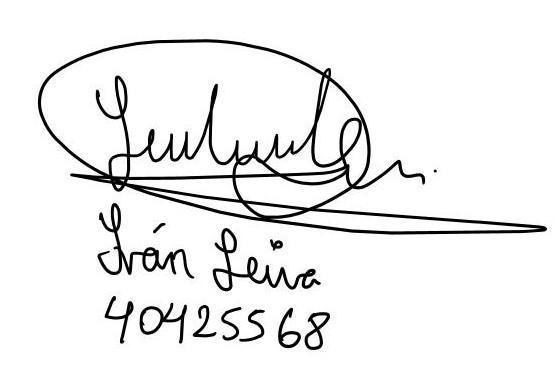 Iván Leiva
40425568